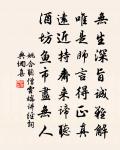 無生深旨誠難解
唯是師言得正真
遠近持齋來諦聽
酒坊魚市盡無人
姚合聽僧雲端講經